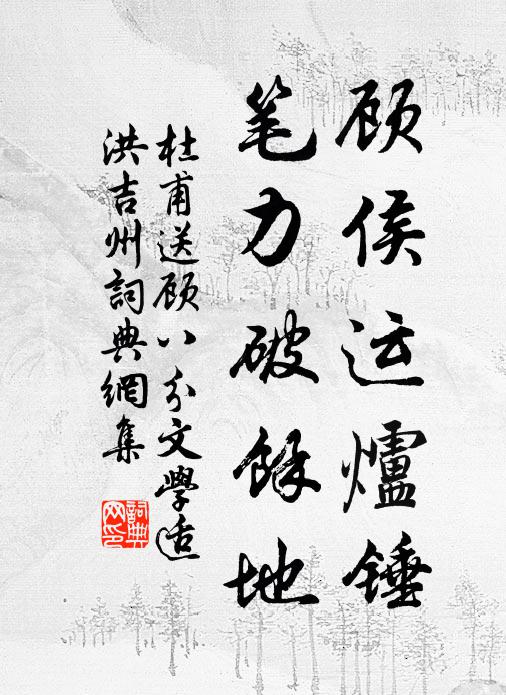 顾侯运爐锤
笔力破餘地
杜甫送顾八分文學适
洪吉州詞典網集
詞典网印